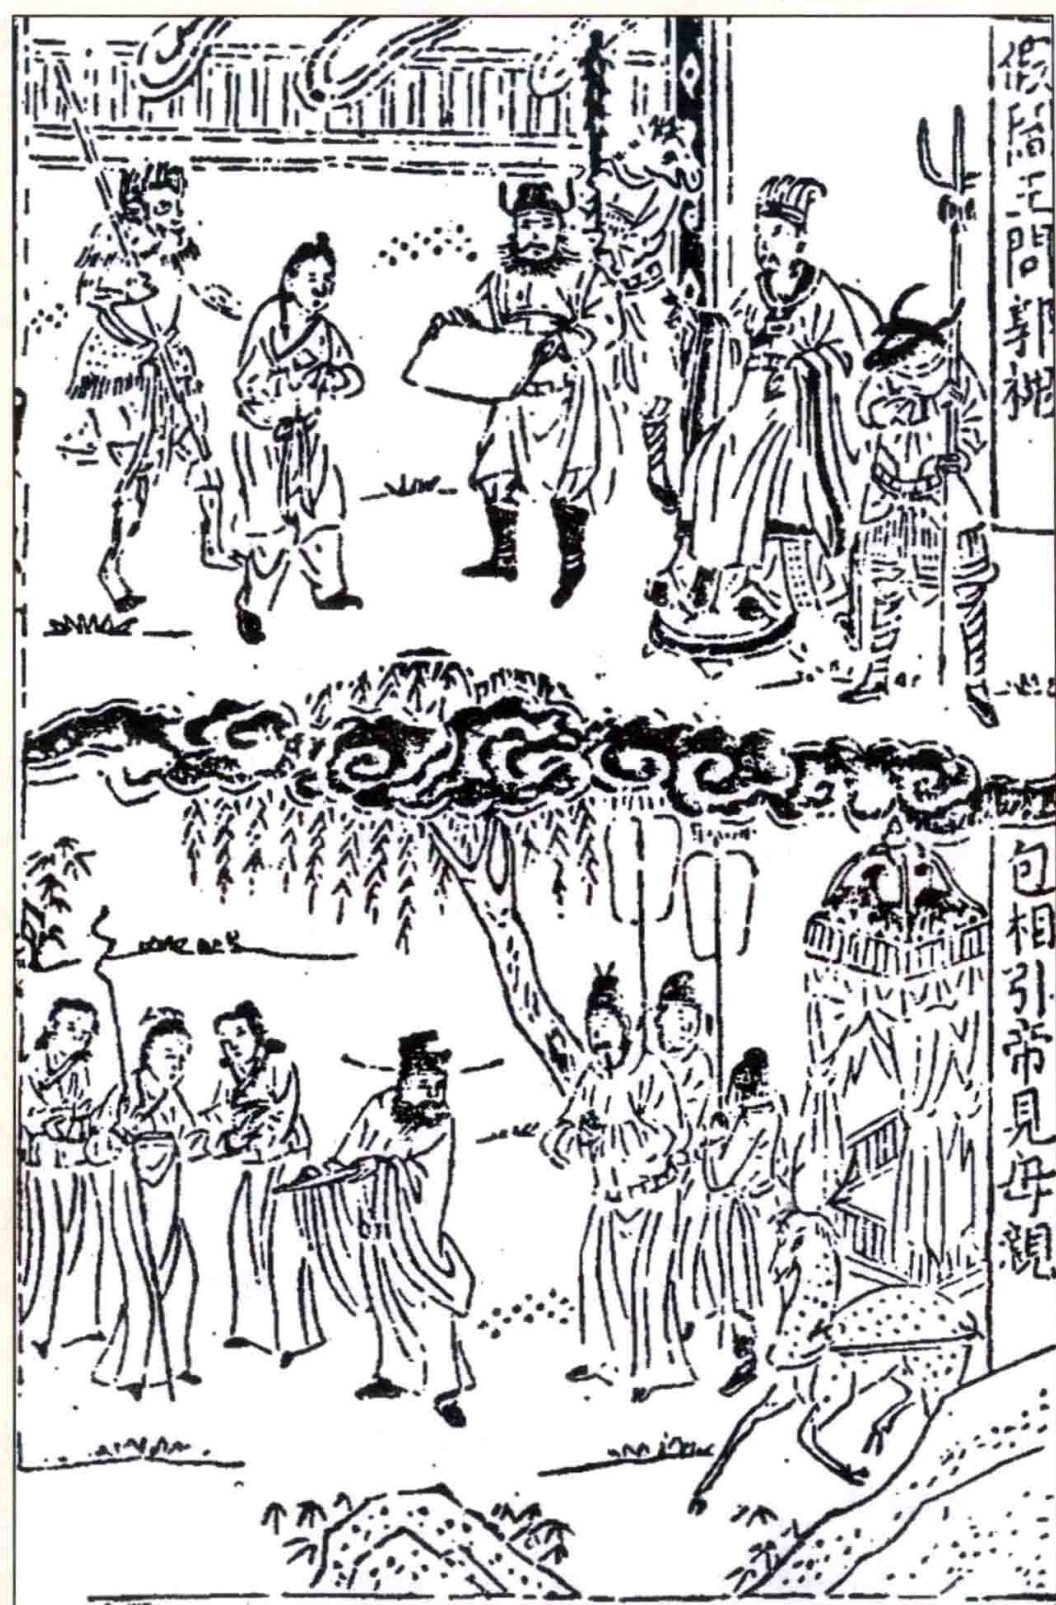 假閻王問郭槐
包相引帝見母親